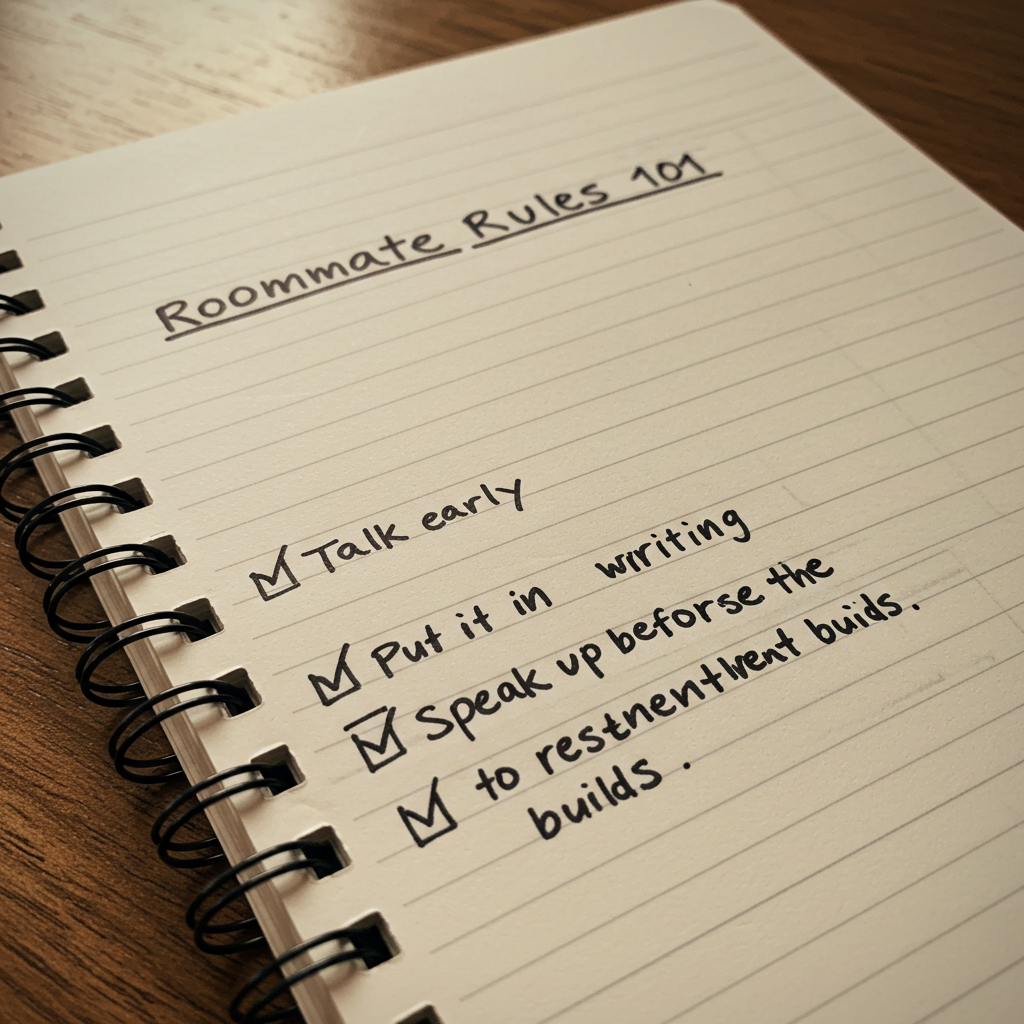 Roommate Rules 101
Talk early
Put it in writing
Speak up beforse the
to restnentlvent buids.
builds.